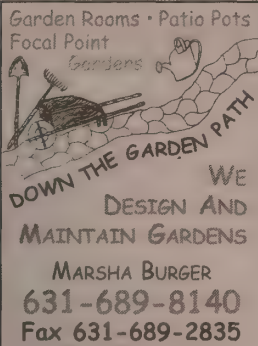 Garden Rooms • Patio Pots
Focal Point
Gardens
DOWN THE GARDEN PATH
WE
DESIGN AND
MAINTAIN GARDENS
MARSHA BURGER
631-689-8140
Fax 631-689-2835